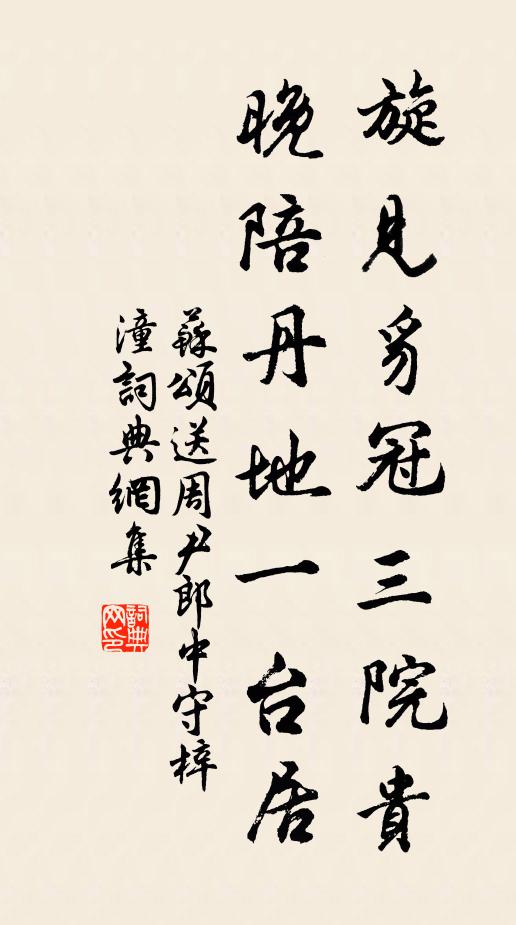 旋見豸冠三院貴
晚陪丹地一台居
蘇頌送周尹郎中守梓
潼詞典網集
詞典網印